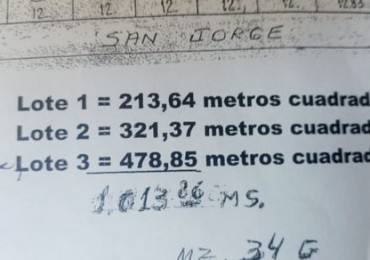 12 12 12 12
SAN JORGE
Lote 1 = 213,64 metros cuadrad
Lote 2 = 321,37 metros cuadrad
Lote 3 = 478,85 metros cuadrad
1.013 86 MS.
MZ. 34 G